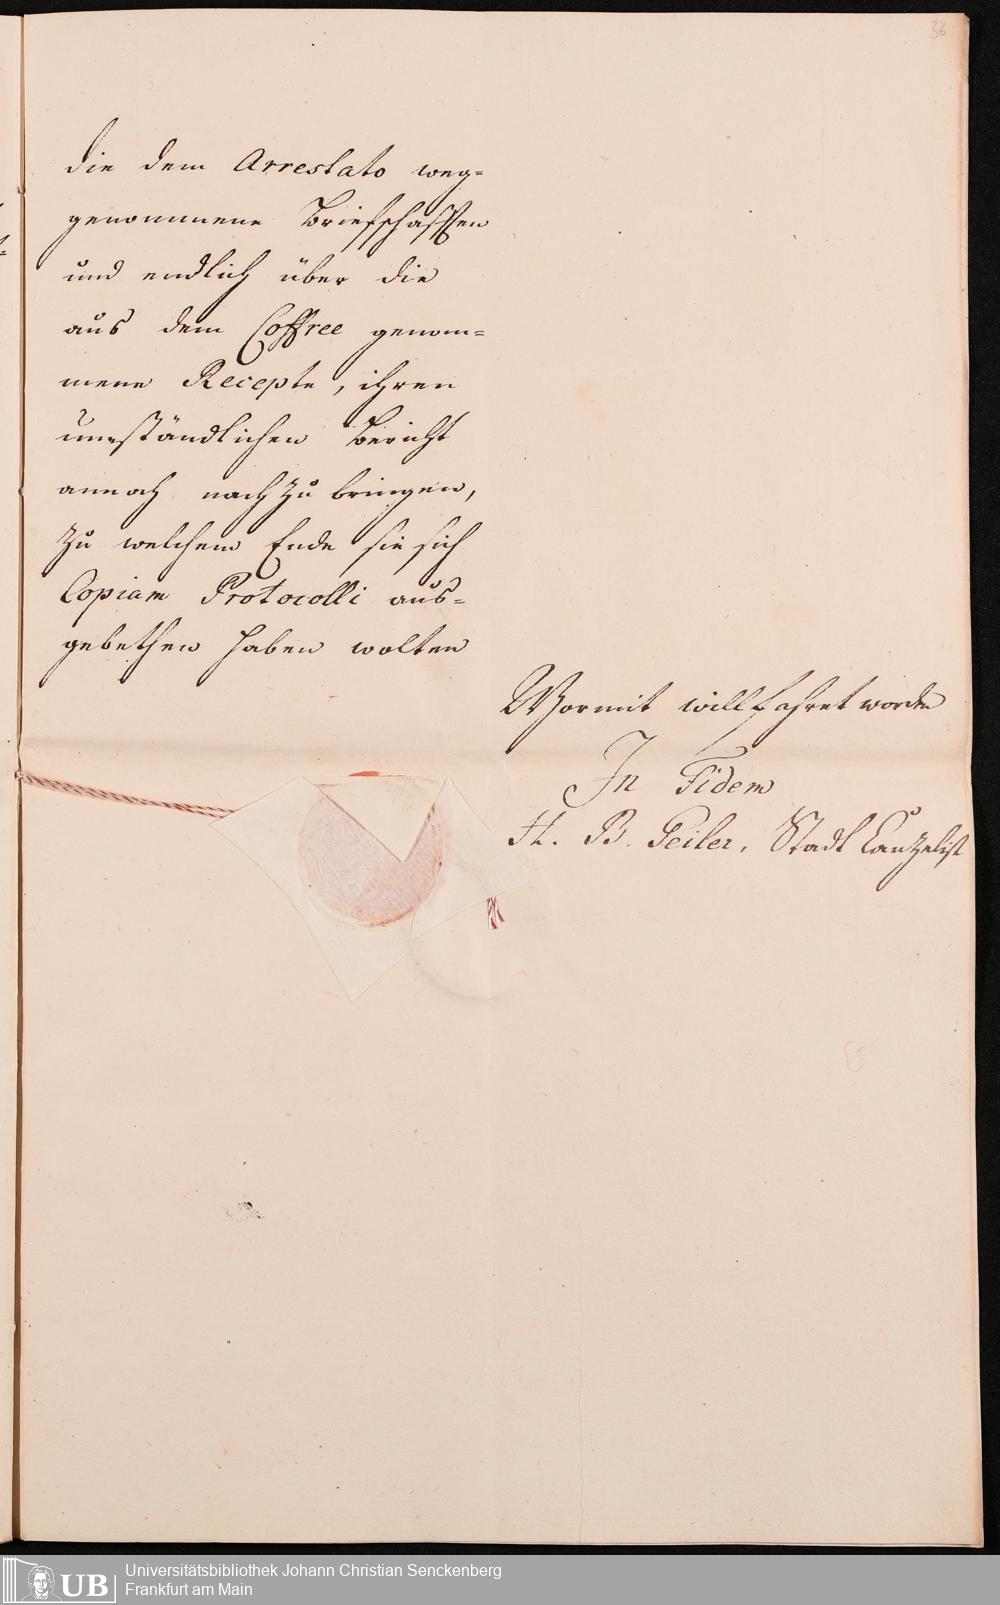 36
die dem Arrestato weg=
genommene Briefschafften
und endlich über die
aus dem Coffree genom=
mene Recepte, ihren
umständlichen Bericht
annoch nach zu bringen,
zu welchem Ende sie sich
Copiam Protocolli aus=
gebethen haben wolten
Wormit willfahret worden
In Fidem
H. B. Peiler, Stadt Canzelist
UB
Universitätsbibliothek Johann Christian Senckenberg
Frankfurt am Main